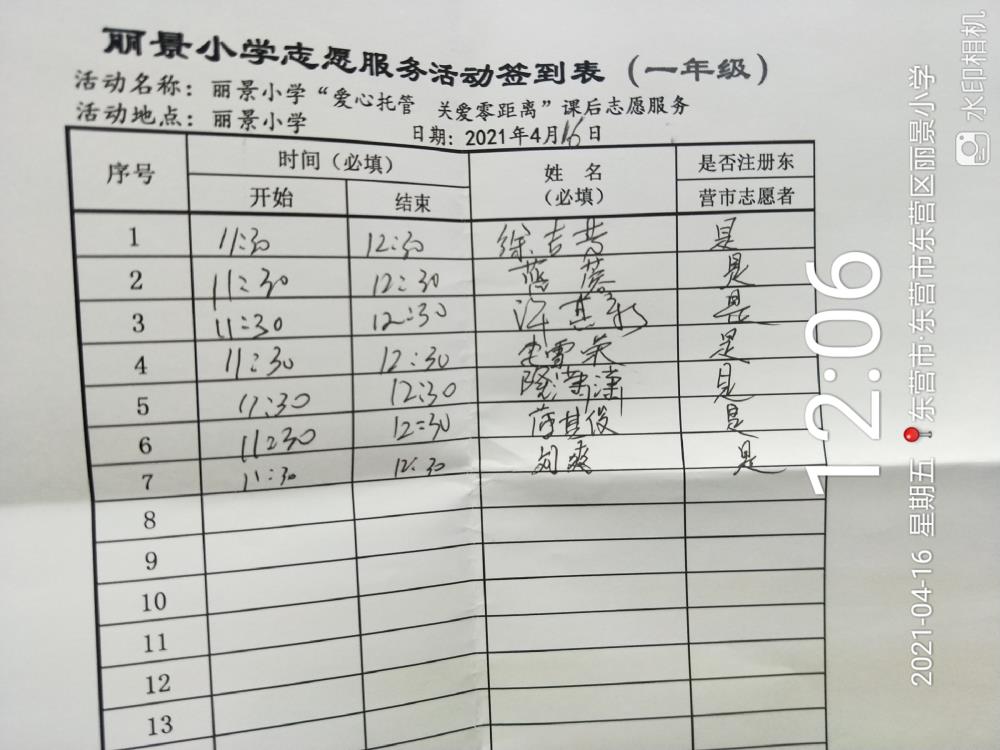 丽景小学志愿服务活动签到表（一年级）
活动名称：丽景小学“爱心托管 关爱零距离”课后志愿服务
活动地点：丽景小学 日期：2021年4月16日
序号 时间（必填） 姓名（必填） 是否注册东营市志愿者
开始 结束
1 11:30 12:30 徐吉芳 是
2 11:30 12:30 是
3 11:30 12:30 是
4 11:30 12:30 雪荣 是
5 11:30 12:30 是
6 11:30 12:30 薄其俊 是
7 11:30 12:30 刘爽 是
8
9
10
11
12
13
12:06
2021-04-16 星期五 东营市·东营市东营区丽景小学
水印相机